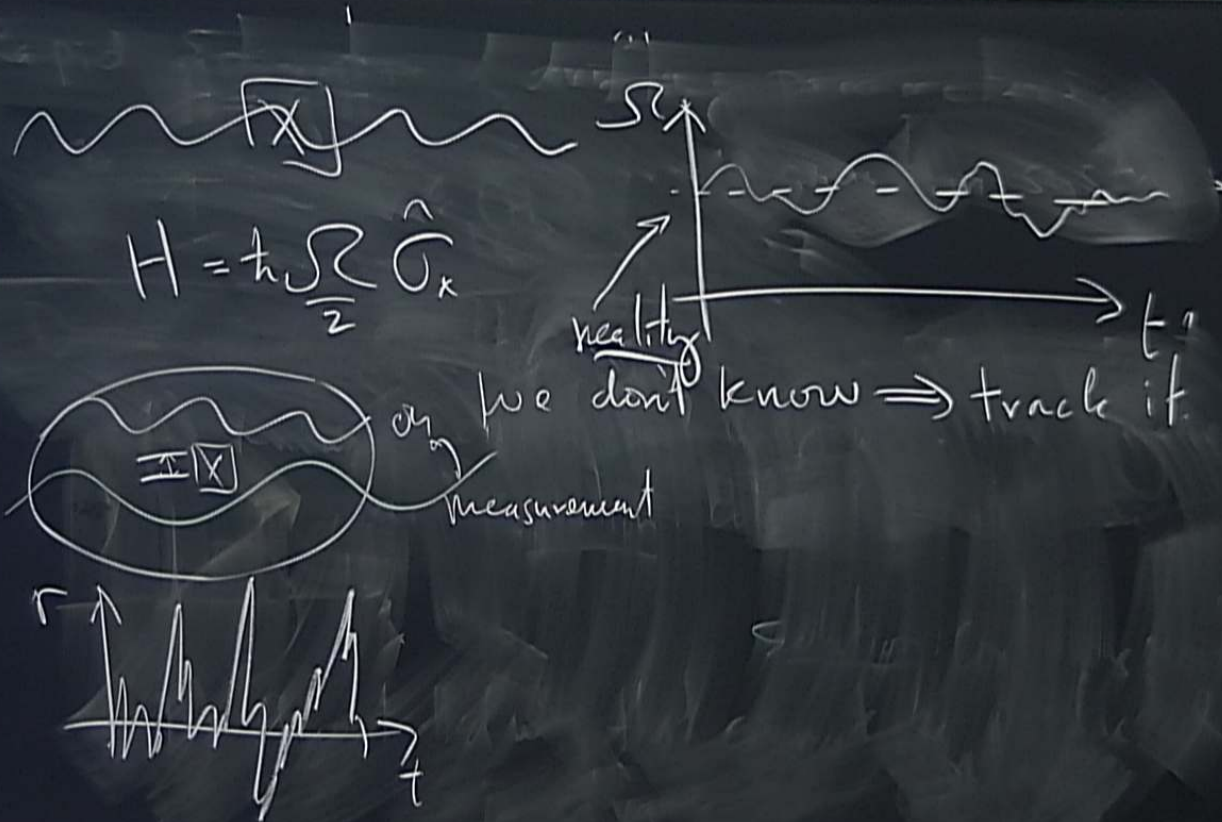 X
Ω
H = ħ Ω/2 σ̂ₓ
reality
t
we don't know ⇒ track it.
X
measurement
r
t